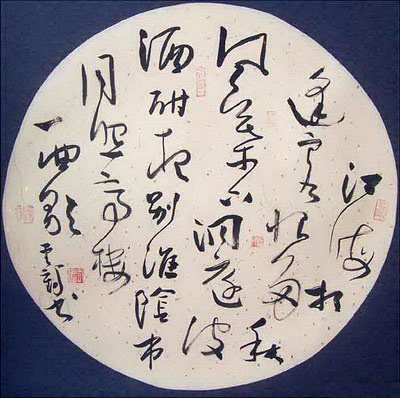 江海相
逢客恨多秋
风葉下洞庭波
酒酣夜别淮陰市
月照高楼
一曲歌 书